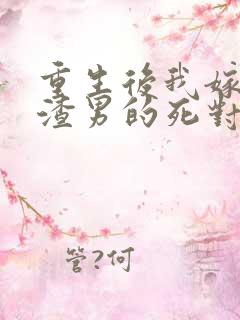 重生後我嫁
渣男的死對
管?何